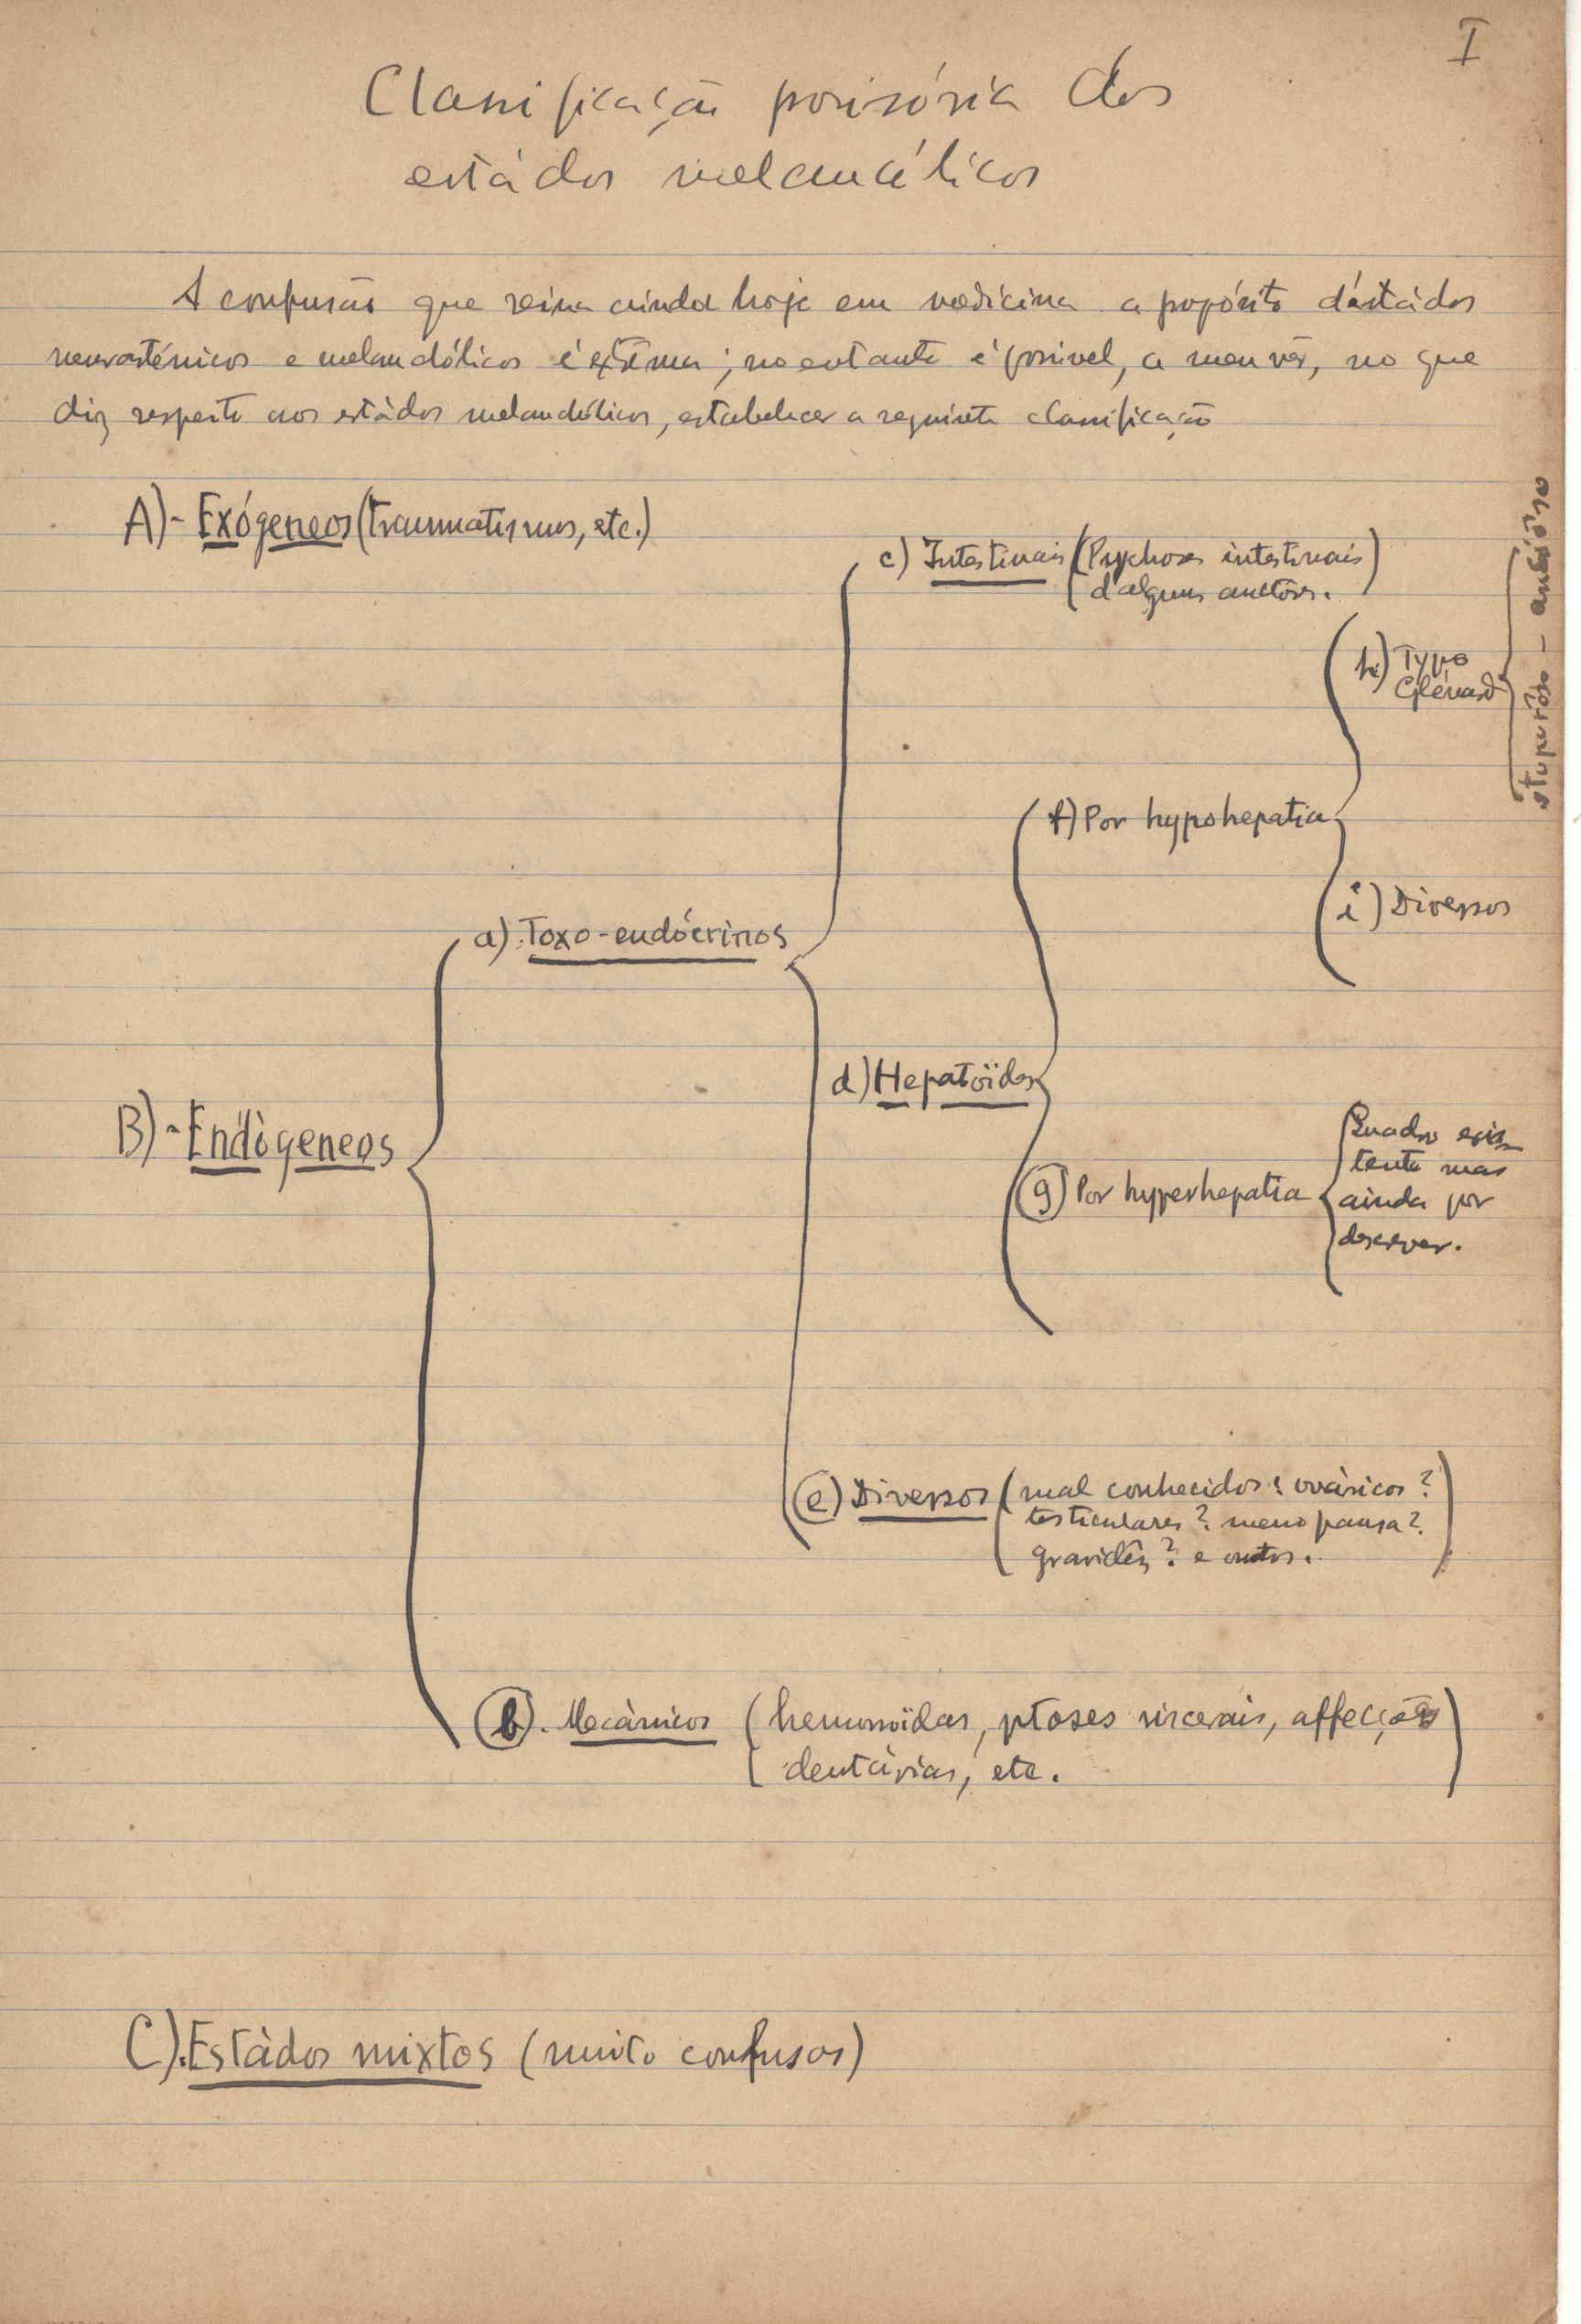 I
Classificação provisória dos
estádos melancólicos
A confusão que reina ainda hoje em medicina a propósito d'estádos
neurasténicos e melancólicos é extrêma; no entanto é possivel, a meu vêr, no que
diz respeito aos estàdos melancólicos, estabelecer a seguinte classificação
A)- Exógeneos (traumatismos, etc.)
c) Intestinais (Psychoses intestinais
d'alguns auctôres.)
h) Typo
Glénard
stuporôso - ansiôso
f) Por hypohepatia
i) Diversos
a). Toxo-endócrinos
d) Hepatoïdes
B)- Endògeneos
g) Por hyperhepatia
Quadro exis-
tente mas
ainda por
descrever.
e) Diversos (mal conhecidos: ováricos?
testiculares? menopausa?
gravidêz? e outros.)
b). Mecànicos (hemorroïdas, ptoses viscerais, affecções
dentàrias, etc.)
C). Estàdos mixtos (muito confusos)